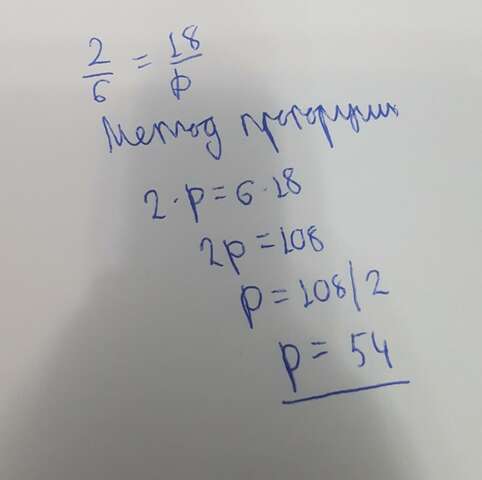 2/6 = 18/p
Метод пропорции
2·p=6·18
2p=108
p=108/2
p=54